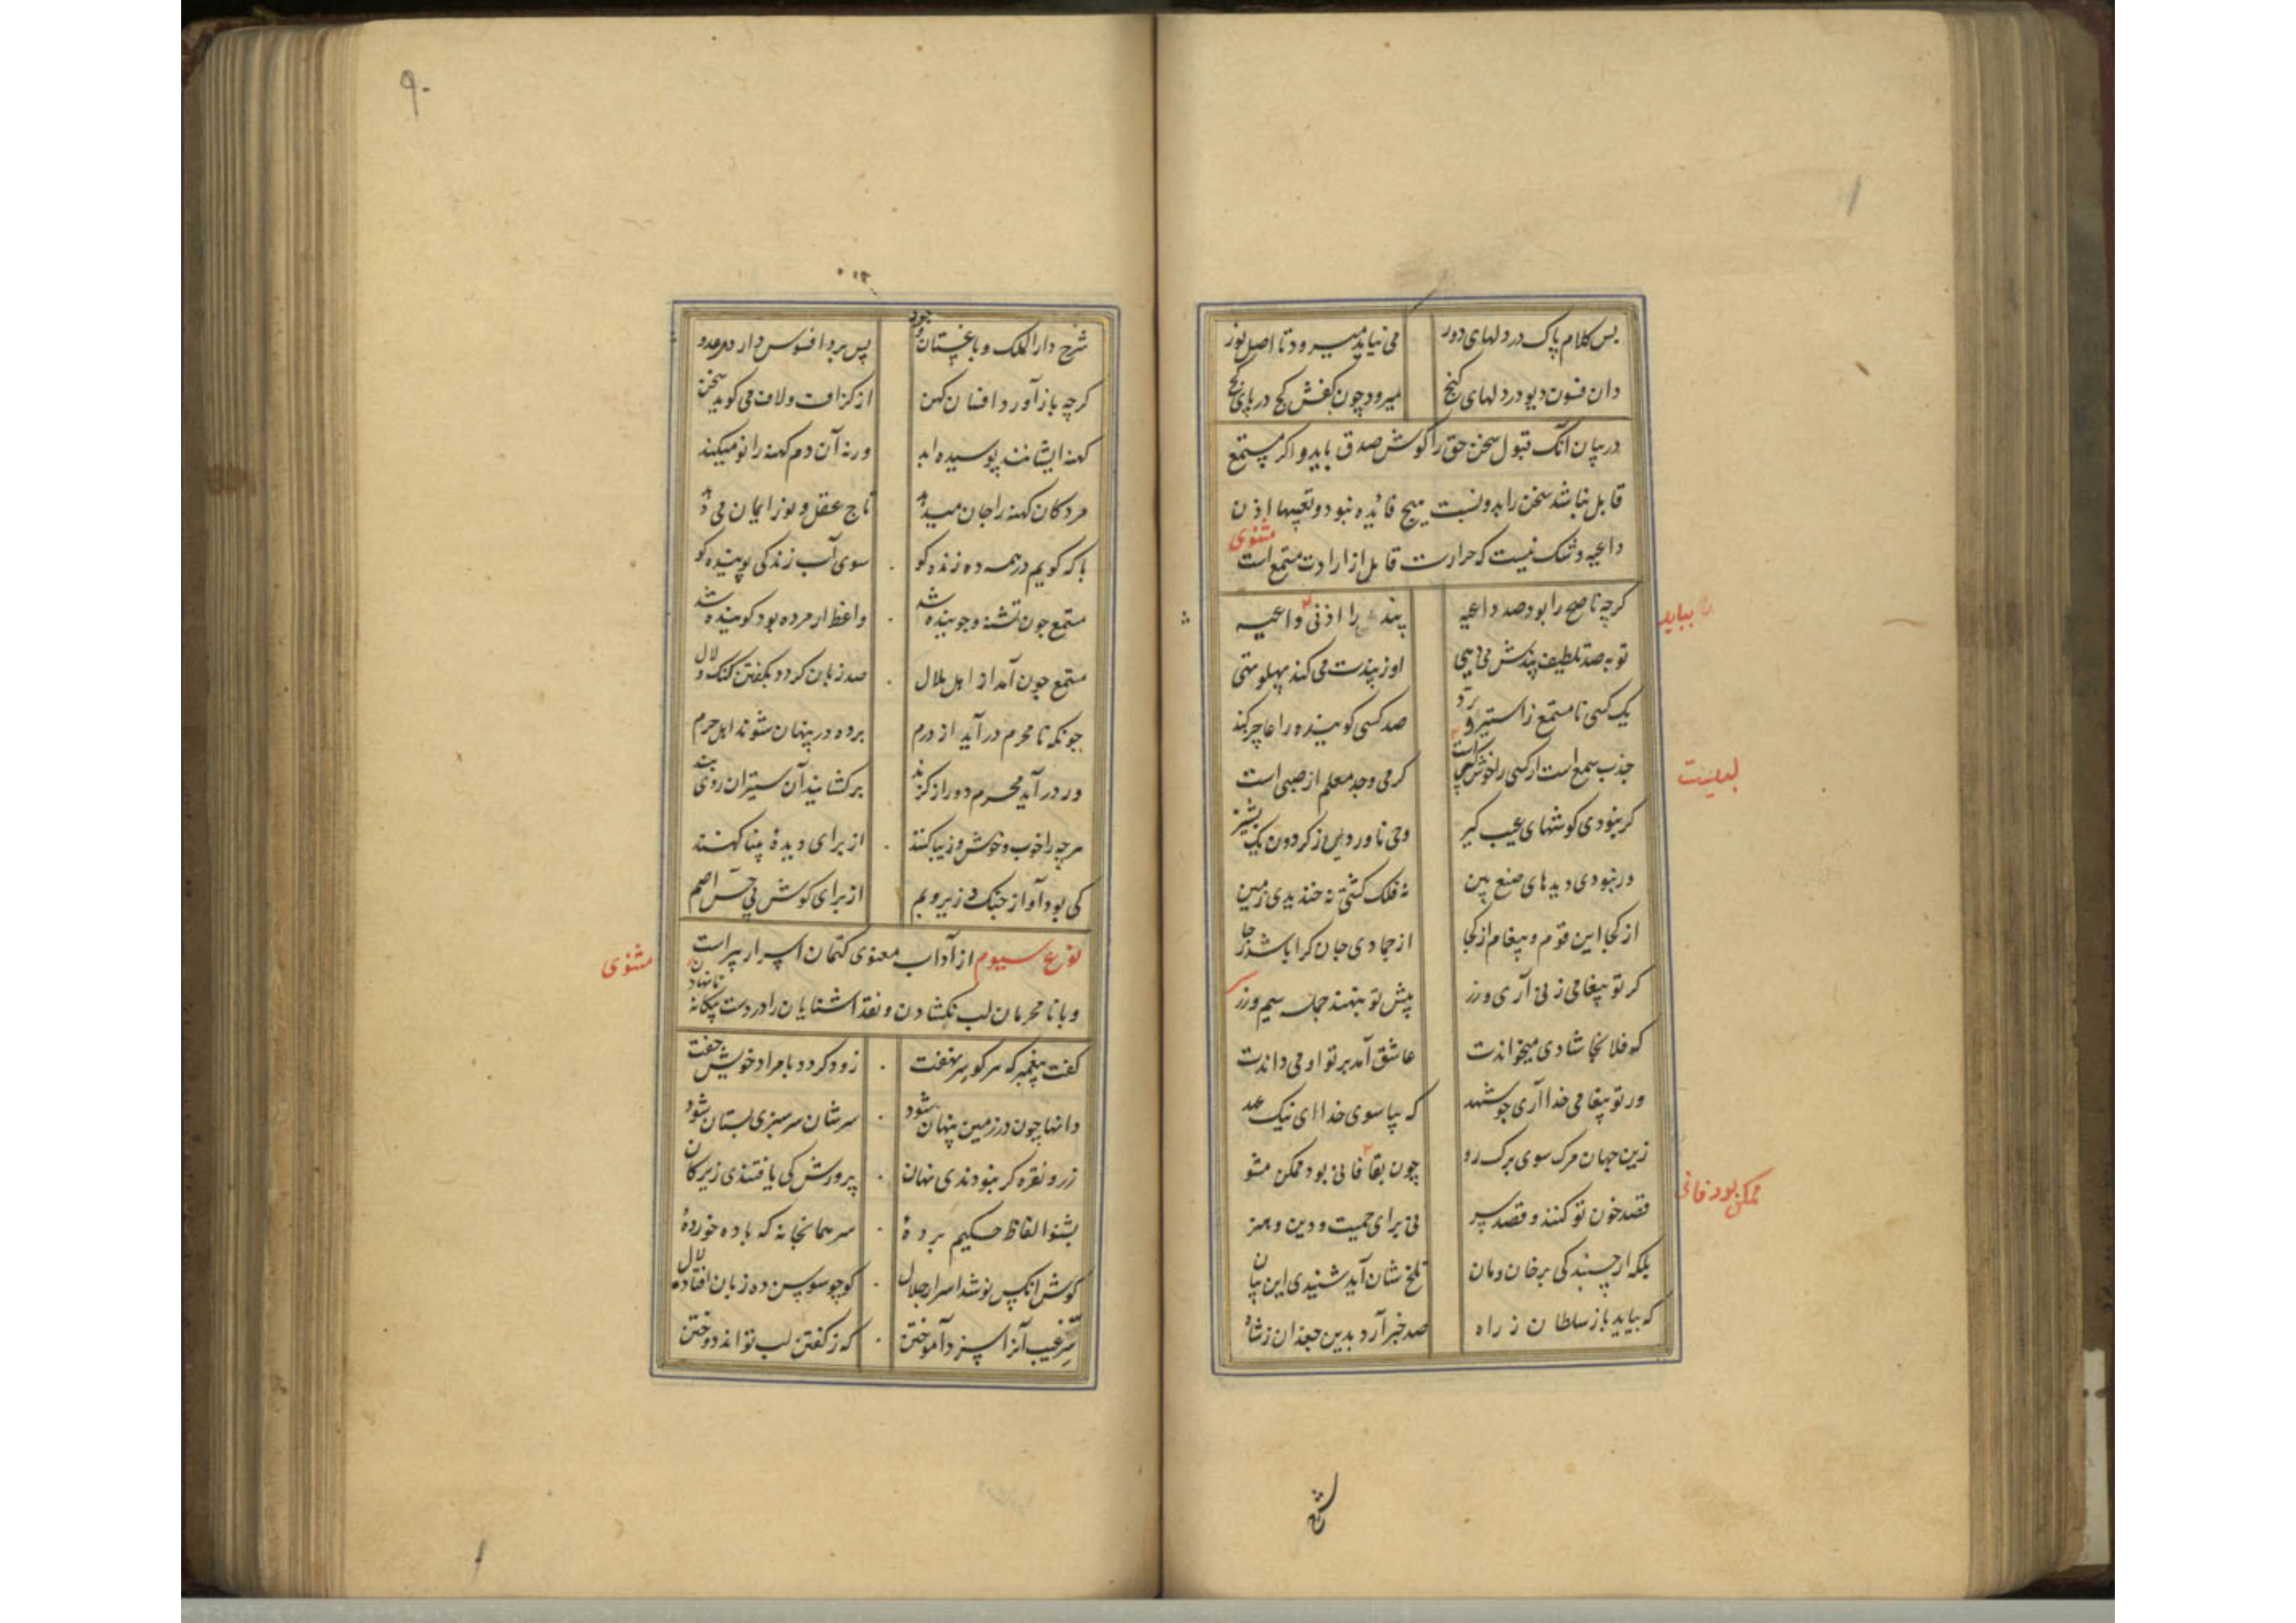 بس کلام پاک در دلهای دور می نیاید میرود تا اصل نور
دان فسون دیو در دلهای کج میرود چون کفش کج در پای کج
در بیان آنک قبول سخن حق را کوش صدق باید و اکر مستمع
قابل نباشد سخن را بدو نسبت هیچ فائده نبود و تعیها اذن
داعیه و شک نیست که حرارت قابل از ارادت مستمع است مثنوی
کرچه ناصح را بود صد داعیه پند را اذنی واعیه
بباید
تو بصد تلطیف پندش می دهی او ز پندت می کند پهلو تهی
یک کسی نا مستمع ز استیز و رد صد کسی کوینده را عاجز کند
جذب سمع است ار کسی را خوش لبی است کرمی وجد معلم از صبی است
لبیست
کر نبودی کوشهای غیب کیر وحی ناوردی ز کردون یک بشیر
ور نبودی دیدهای صنع بین نه فلک کشتی نه خندیدی زمین
از کجا این قوم و پیغام از کجا از جمادی جان کرا باشد رجا
کر تو پیغامی زنی آری و زر پیش تو بنهند جمله سیم و زر
که فلانجا شادی میخواندت عاشق آمد بر تو او می داندت
ور تو پیغامی خدا آری چو شهد که بیا سوی خدا ای نیک عهد
زین جهان مرک سوی برک رو چون بقا فانی بود ممکن مشو
ممکن بود فانی
قصد خون تو کنند و قصد سر نی برای حمیت و دین و هنر
بلکه از چسبندکی بر خان و مان تلخ شان آید شنیدی این بیان
که بیاید باز سلطان ز راه صد خبر آرد بدین جغدان ز شاه
شرح
۹۰
شرح دار الملک و باغستان و جود پس برو افسوس دارد هر عدو
کرچه باز آورد افسان کهن از کزاف و لاف می کوید سخن
کهنه ایشانند پوسیده ابد ورنه آن دم کهنه را نو میکند
مردکان کهنه را جان میدهد تاج عقل و نور ایمان می دهد
با که کویم در همه ده زنده کو سوی آب زندکی پوینده کو
مستمع چون تشنه و جوینده شد واعظ ار مرده بود کوینده شد
مستمع چون آمد از اهل بلال صد زبان کردد بکفتن کنک و لال
چونکه نا محرم در آید از درم پرده در پنهان شوند اهل حرم
ور در آید محرم دور از کزند برکشایند آن ستیران روی بند
هرچه را خوب و خوش و زیبا کنند از برای دیدهٔ بینا کنند
کی بود آواز چنک و زیر و بم از برای کوش بی حس اصم
نوع سیوم از آداب معنوی کتمان اسرار پیر است
مثنوی
و با نامحرمان لب نکشادن و نقد آشنایان را در دست بیکانه نانهادن
کفت پیغمبر که هر کو سر نهفت زود کردد با مراد خویش جفت
دانها چون در زمین پنهان شود سر شان سرسبزی بستان شود
زر و نقره کر نبودندی نهان پرورش کی یافتندی زیر کان
بشنو الفاظ حکیم بردهٔ سر همانجا نه که باده خوردهٔ
کوش آنکس نوشد اسرار جلال کو چو سوسن ده زبان افتاد و لال
سر غیب آنرا سزد آموختن که ز کفتن لب تواند دوختن